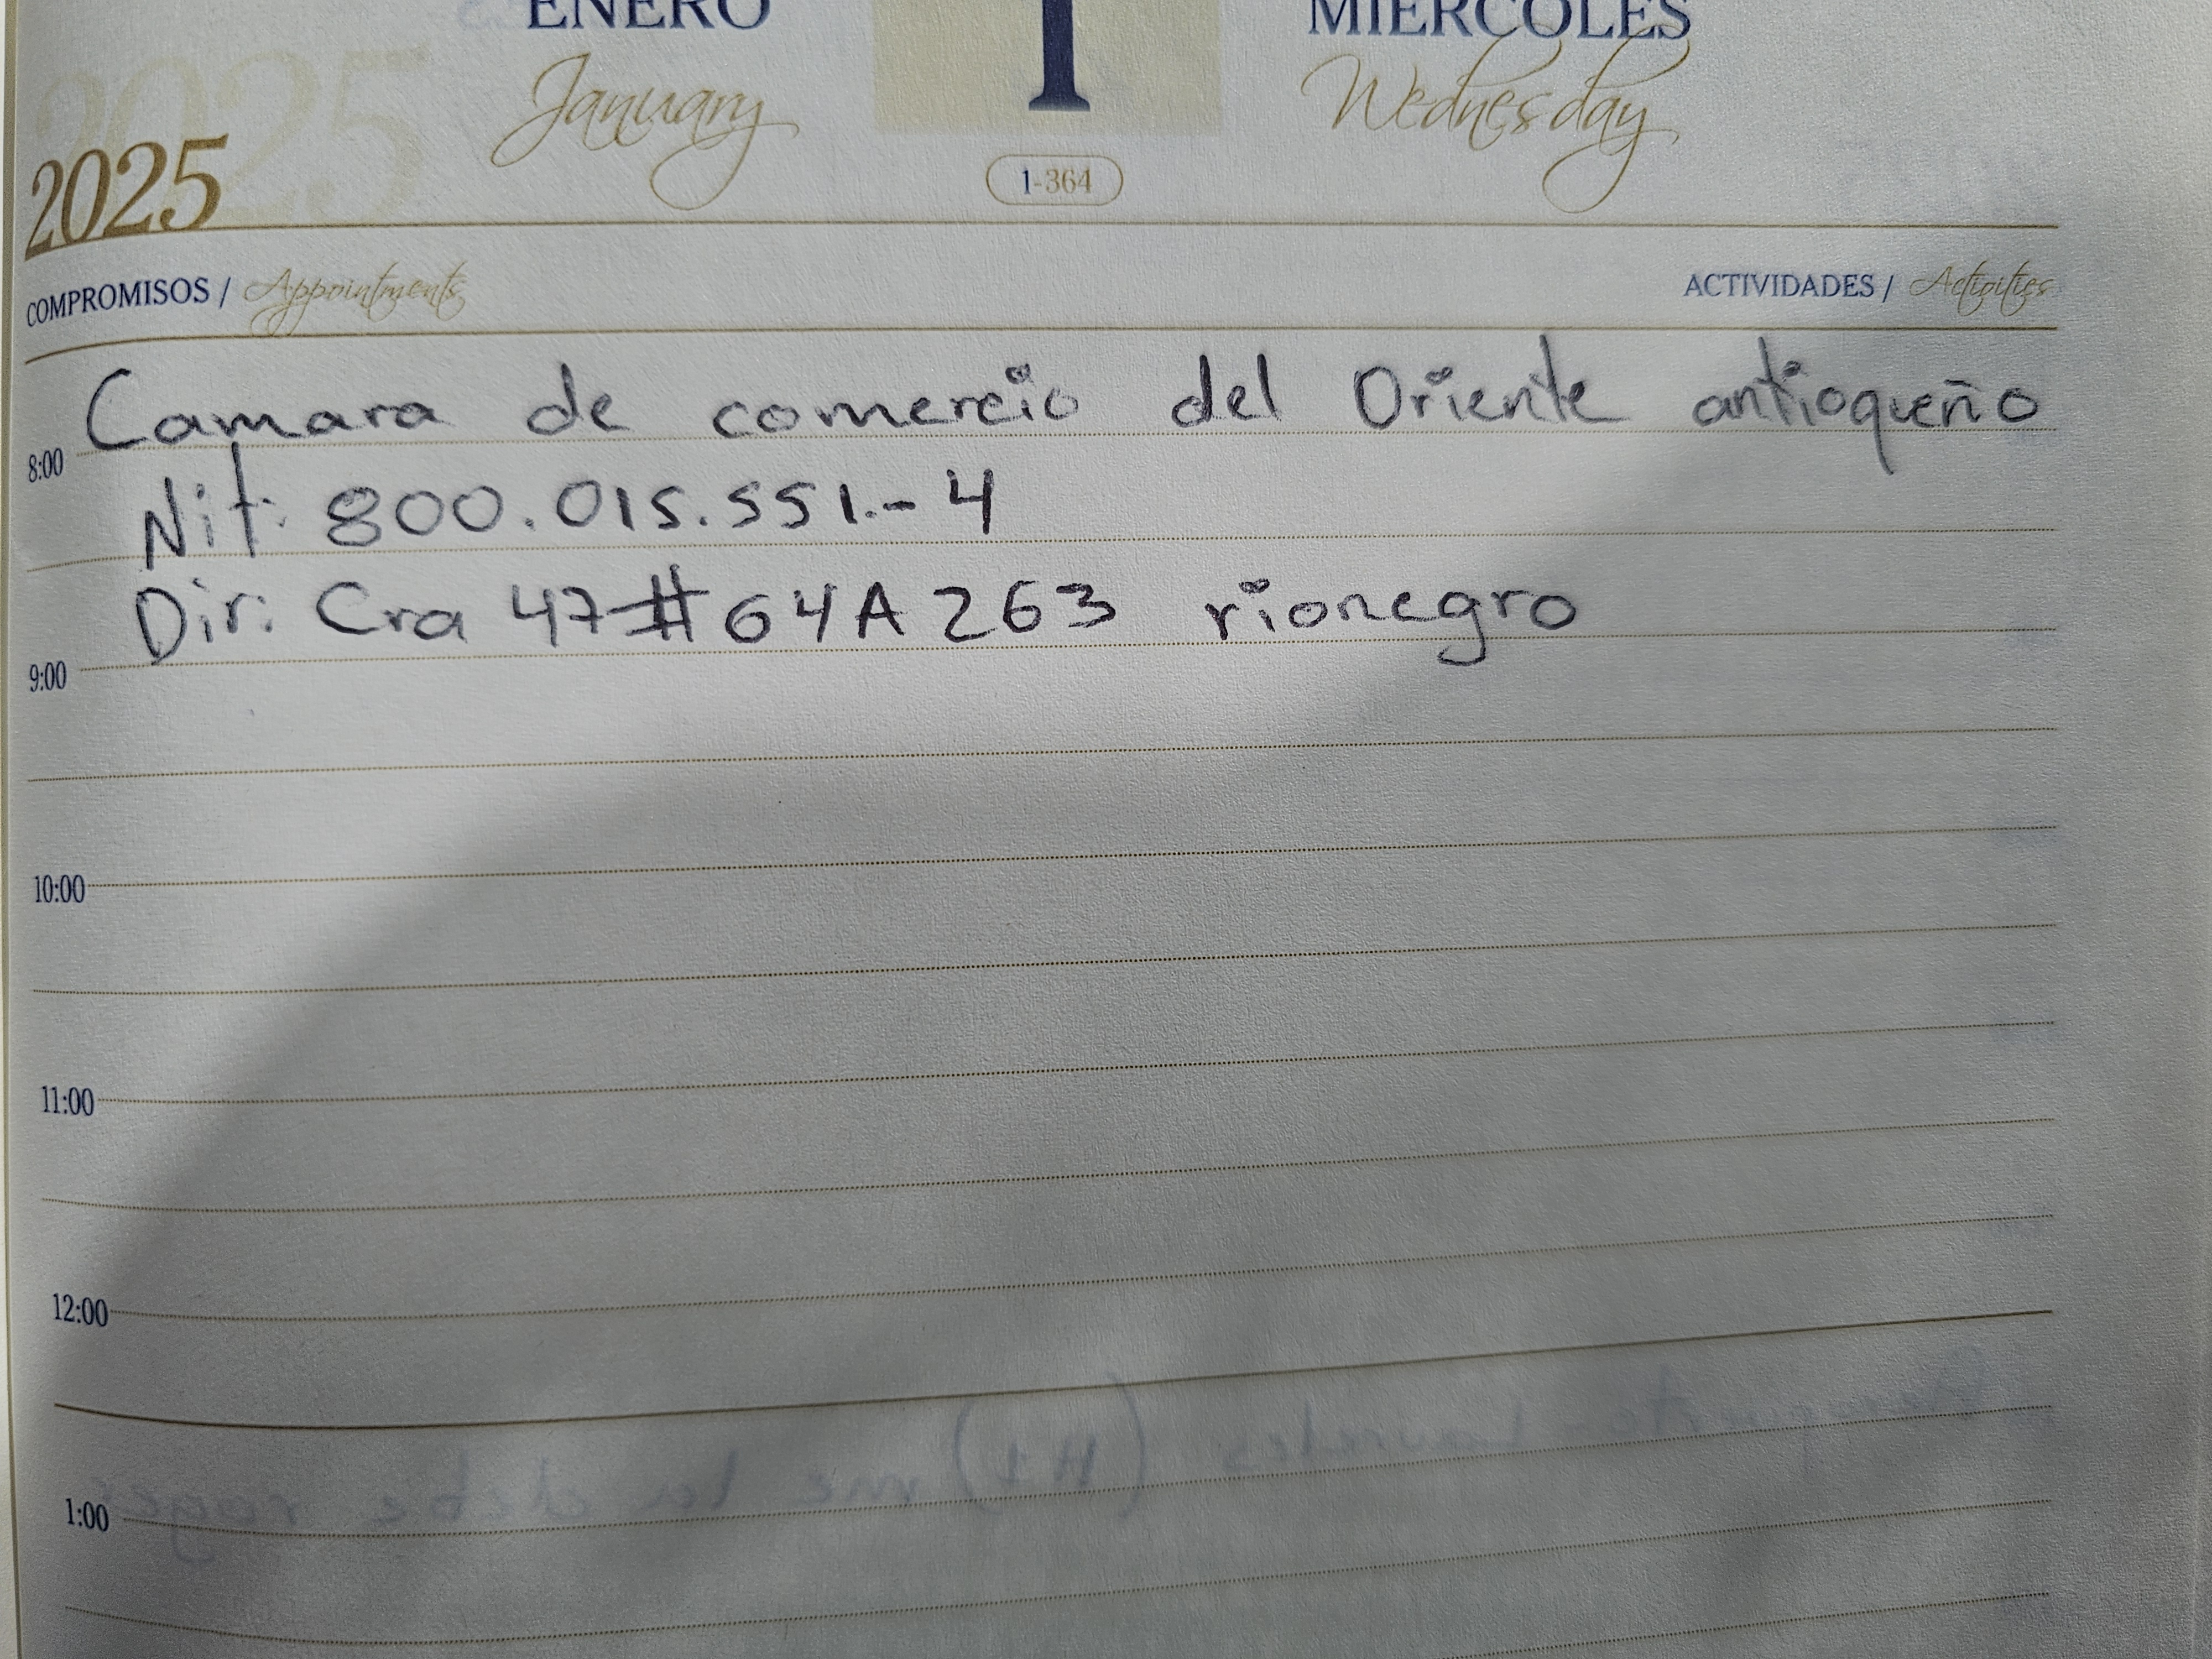 ENERO 1 MIERCOLES
January Wednesday
2025
1-364
COMPROMISOS / Appointments ACTIVIDADES / Activities
Camara de comercio del Oriente antioqueño
8:00
Nit: 800.015.551.-4
Dir: Cra 47 # 64A 263 rionegro
9:00
10:00
11:00
12:00
1:00